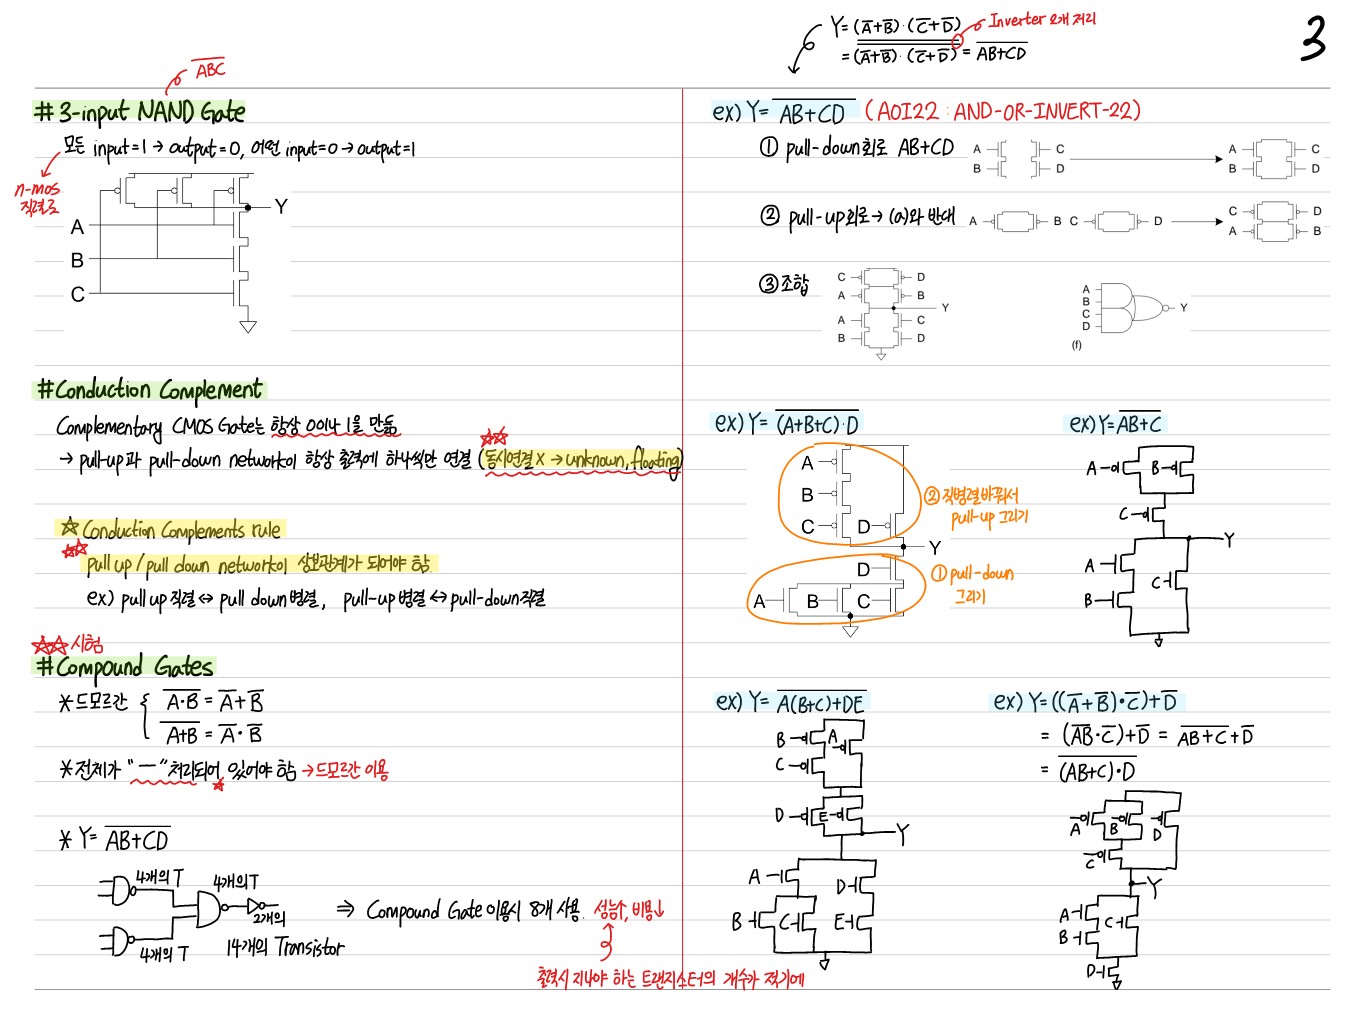 3
Y= (A̅+B̅)·(C̅+D̅) Inverter 2개 처리
= (A̅+B̅)·(C̅+D̅) = A̅B̅+̅C̅D̅
A̅B̅C̅
# 3-input NAND Gate
모든 input=1 → output=0, 어떤 input=0 → output=1
n-mos
직렬로
Y
A
B
C
# Conduction Complement
Complementary CMOS Gate는 항상 0이나 1을 만듦
→ pull-up과 pull-down network이 항상 출력에 하나씩만 연결 (동시연결 X → unknown, floating)
☆ Conduction Complements rule
pull up / pull down network이 상보관계가 되어야 함
ex) pull up 직렬 ↔ pull down 병렬, pull-up 병렬 ↔ pull-down 직렬
☆☆ 시험
# Compound Gates
* 드모르간 { A̅·̅B̅ = A̅+B̅
A̅+̅B̅ = A̅·B̅
* 전체가 "—" 처리되어 있어야 함 → 드모르간 이용
* Y= A̅B̅+̅C̅D̅
4개의 T 4개의 T
2개의
4개의 T 14개의 Transistor
⇒ Compound Gate 이용시 8개 사용. 성능↑, 비용↓
출력시 지나야 하는 트랜지스터의 개수가 적기에
ex) Y= A̅B̅+̅C̅D̅ (AOI22 : AND-OR-INVERT-22)
① pull-down회로 AB+CD
A C A C
B D B D
② pull-up회로 → (a)와 반대
A B C D C D
A B
③ 조합
C D
A B
Y
A C
B D
A
B
C
D
Y
(f)
ex) Y= (̅A̅+̅B̅+̅C̅)̅·̅D̅
A
B
C D
Y
D
A B C
② 직병렬 바꿔서
pull-up 그리기
① pull-down
그리기
ex) Y= A̅B̅+̅C̅
A B
C
Y
A
C
B
ex) Y= A̅(̅B̅+̅C̅)̅+̅D̅E̅
B A
C
D E
Y
A D
B C E
ex) Y= ((A̅+B̅)·C̅)+D̅
= (A̅B̅·C̅)+D̅ = A̅B̅+̅C̅+D̅
= (̅A̅B̅+̅C̅)̅·̅D̅
A B D
C
Y
A
C
B
D